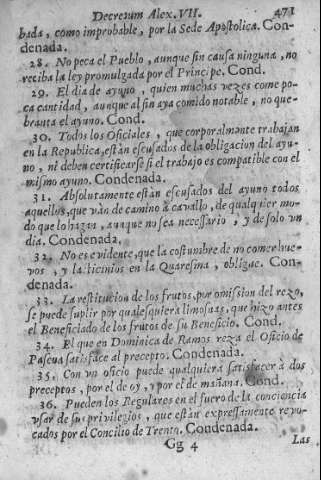 Decretum Alex. VII. 471
bada, como improbable, por la Sede Apostolica. Con-
denada.
28. No peca el Pueblo, aunque sin causa ninguna, no
reciba la ley promulgada por el Principe. Cond.
29. El dia de ayuno, quien muchas vezes come po-
ca cantidad, aunque al fin aya comido notable, no que-
branta el ayuno. Cond.
30. Todos los Oficiales, que corporalmente trabajan
en la Republica, están escusados de la obligacion del ayu-
no, ni deben certificarse si el trabajo es compatible con el
mismo ayuno. Condenada.
31. Absolutamente están escusados del ayuno todos
aquellos, que ván de camino à cavallo, de qualquier mo-
do que lo hagan, aunque no sea necessario, y de solo vn
dia. Condenada,
32. No es evidente, que la costumbre de no comer hue-
vos, y lacticinios en la Quaresma, obligue. Con-
denada.
33. La restitucion de los frutos, por omission del rezo,
se puede suplir por qualesquiera limosnas, que hizo antes
el Beneficiado de los frutos de su Beneficio. Cond.
34. El que en Dominica de Ramos reza el Oficio de
Pascua satisface al precepto. Condenada.
35. Con vn oficio puede qualquiera satisfacer à dos
preceptos, por el de oy, y por el de mañana. Cond.
36. Pueden los Regulares en el fuero de la conciencia
vsar de sus privilegios, que están expressamente revo-
cados por el Concilio de Trento. Condenada.
Gg 4 Las